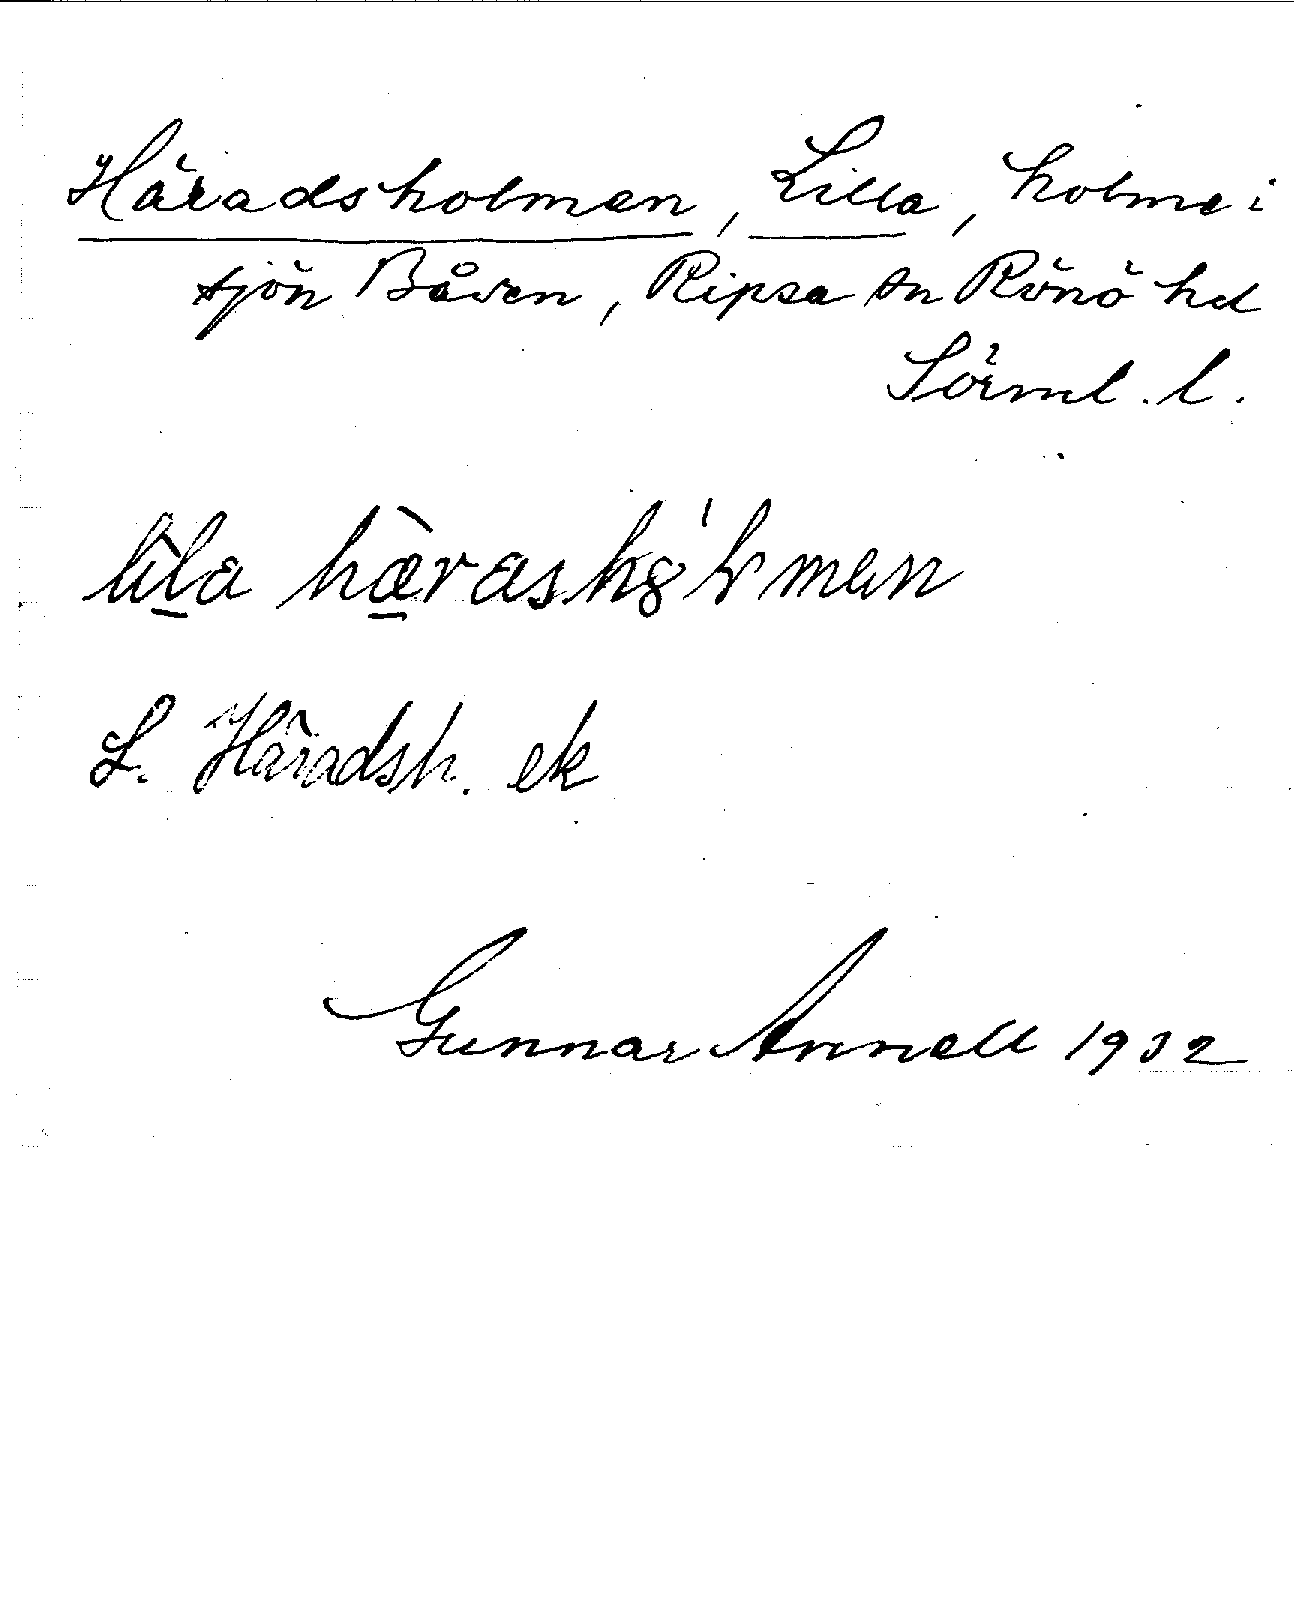 Häradsholmen, Lilla, holme i
sjön Båven, Ripsa sn Rönö hd
Sörml. l.
lìla hæ̀rashȯ'lmen
L. Häradsh. ek
Gunnar Annell 1932